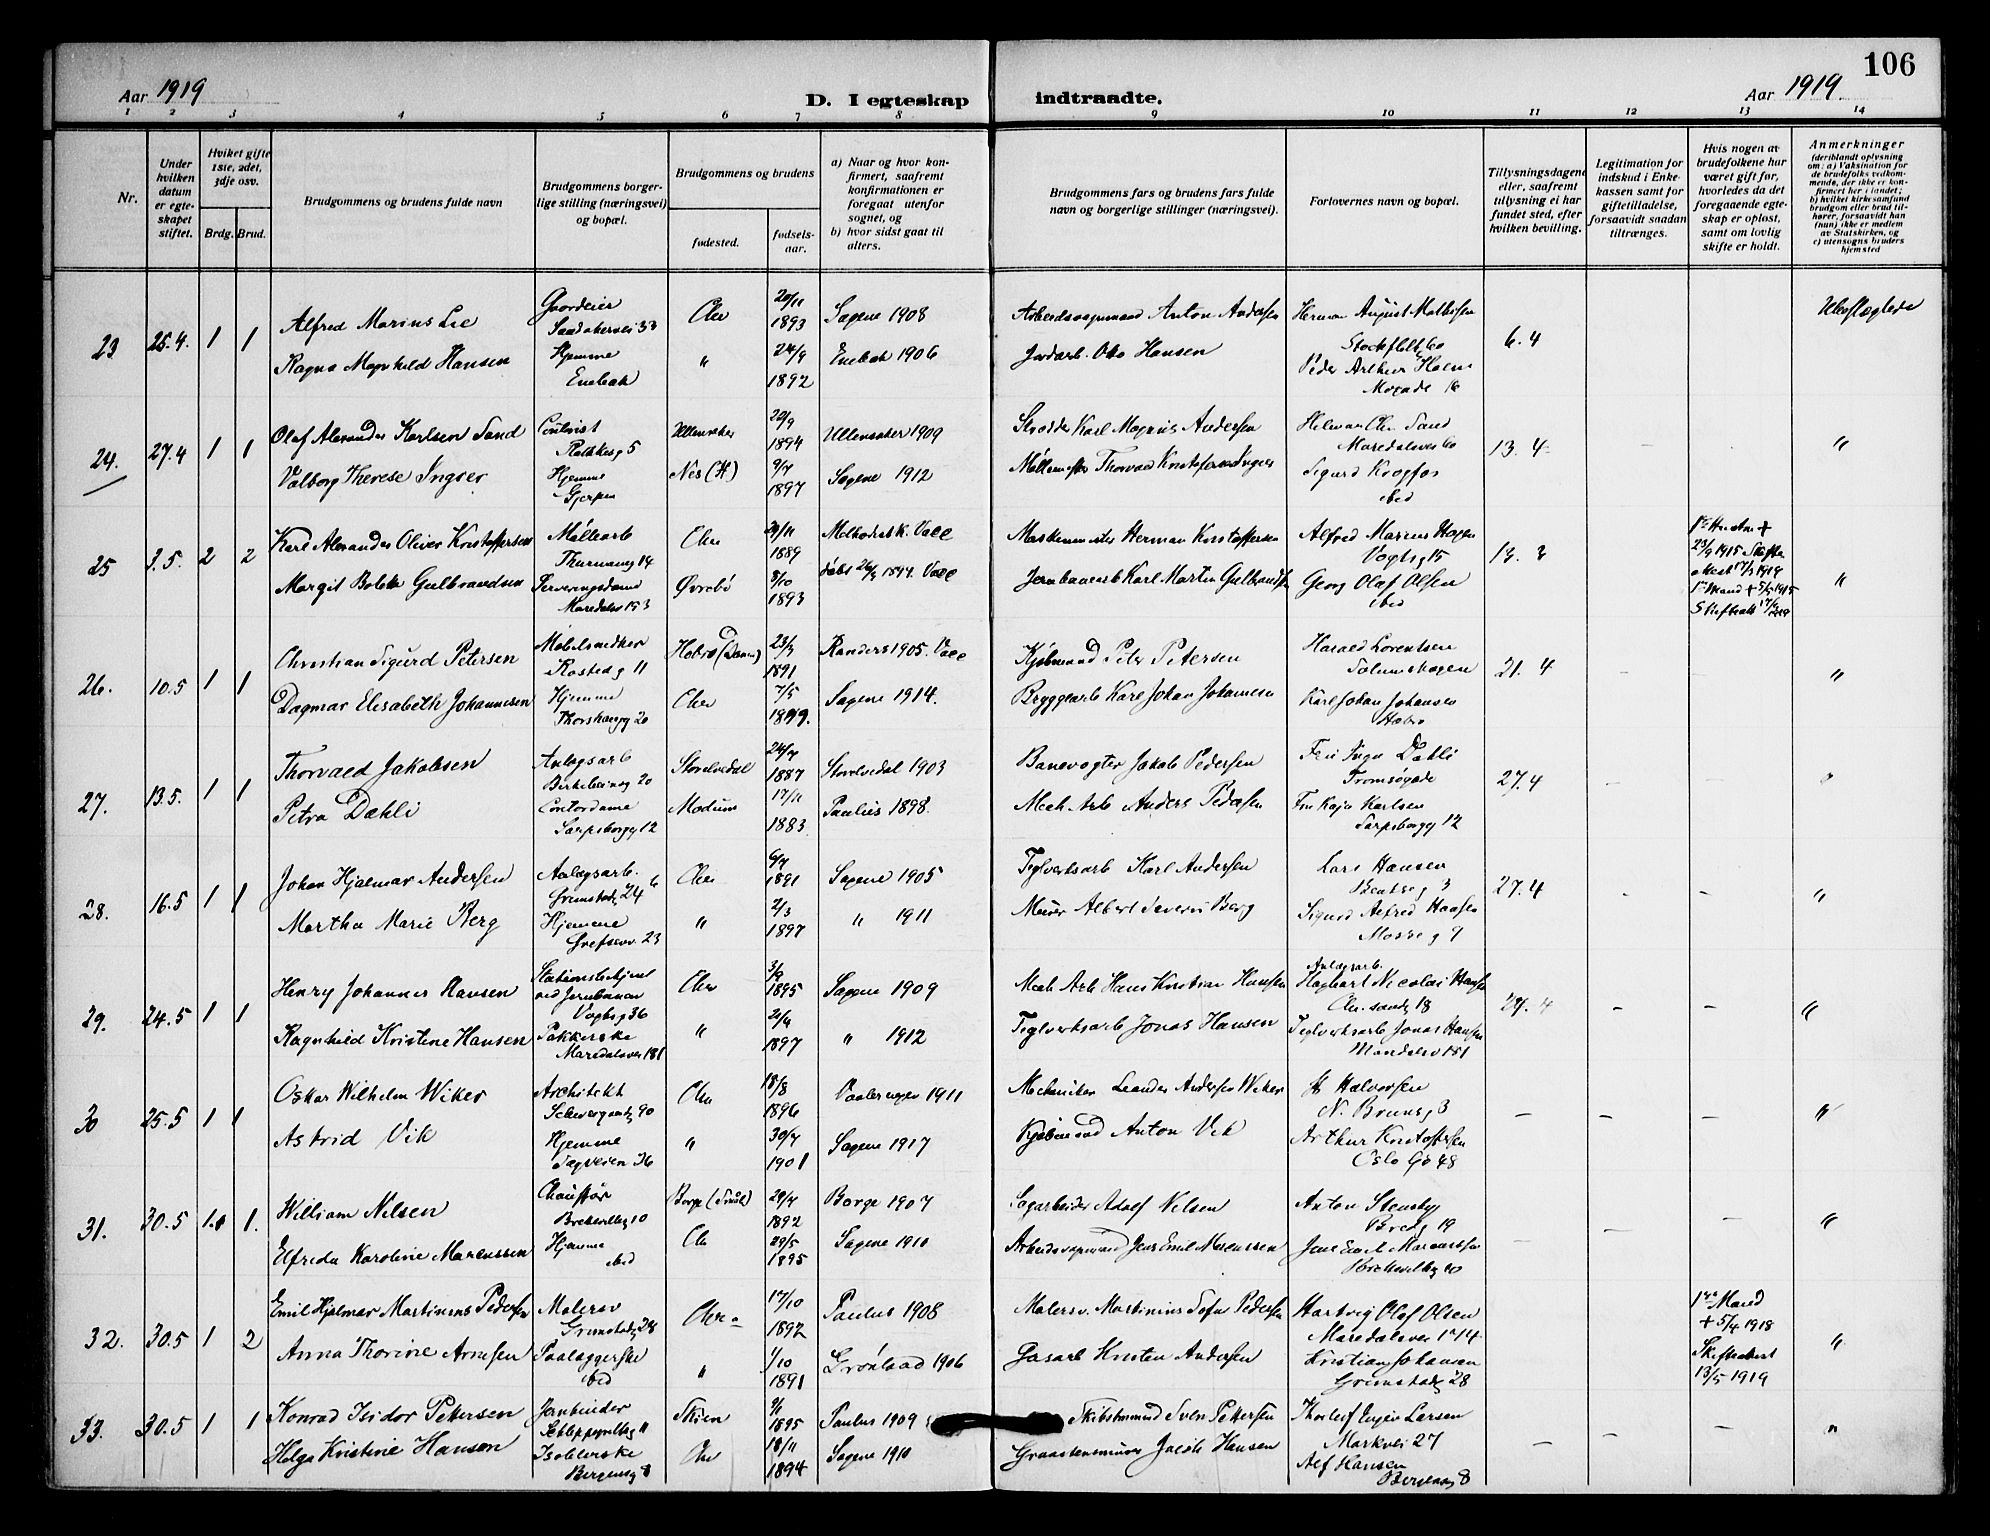 106
Aar 1919
D. I egteskap
indtraadte.
Aar 1919
1 2 3 4 5 6 7 8 9 10 11 12 13 14
Nr.
Under hvilken datum er egteskapet stiftet.
Hviket gifte 1ste, 2det, 3dje osv.
Brdg. Brud.
Brudgommens og brudens fulde navn
Brudgommens borgerlige stilling (næringsvei) og bopæl.
Brudgommens og brudens
fødested.
fødselsaar.
a) Naar og hvor konfirmert, saafremt konfirmationen er foregaat utenfor sognet, og
b) hvor sidst gaat til alters.
Brudgommens fars og brudens fars fulde navn og borgerlige stillinger (næringsvei).
Forlovernes navn og bopæl.
Tillysningsdagene eller, saafremt tillysning ei har fundet sted, efter hvilken bevilling.
Legitimation for indskud i Enkekassen samt for giftetilladelse, forsaavidt saadan tiltrænges.
Hvis nogen av brudefolkene har været gift før, hvorledes da det foregaaende egteskap er opløst, samt om lovlig skifte er holdt.
Anmerkninger
(deriblandt oplysning om: a) Vaksination for de brudefolks vedkommende, der ikke er konfirmert her i landet; b) hvilket kirkesamfund brudgom eller brud tilhører, forsaavidt han (hun) ikke er medlem av Statskirken, og c) utensogns bruders hjemsted
23 25.4. 1 1 Alfred Marius Lie Gaardeier Sandakervei 33 Chr 20/11 1893 Sagene 1908 Arbeidsvognmand Anton Andersen Herman August Mathisen 6.4
Ragna Magnhild Hansen Hjemme Enebak " 24/9 1892 Enebak 1906 Jordarb. Hansen Peder Arthur Holm
24. 27.4 1 1 Olaf Alexander Karlsen Sand 5 Ullensaker 22/9 1894 Ullensaker 1909 Skrædder Karl Magnus Andersen Sand 13.4 - - "
Valborg Therese Ingier Hjemme Gjerpen Nes (H) 9/7 1897 Sagene 1912 Thorvald Kristofersen Ingier Sigurd Krogfos ibed
25 3.5. 2 2 Karl Alexander Oliver Kristoffersen Møllearb Thurmanng 14 Chr 1889 Methodist k. Vaal Maskinmester Herman Kristoffersen Alfred Marius Hagen Vogtsg 15 13.3 "
Margit Bolette Gulbrandsen Serveringsdame Maridalsv 153 Øvrebø 8/10 1893 Jernbanearb Karl Martin Gulbrandsen Georg Olaf Olsen ibed
26. 10.5 1 1 Christian Sigurd Petersen Møbelsnedker Rostedg 11 Hobro (Danm) 23/7 1891 Randers 1905. Vaal Kjøbmand Peter Petersen Harald Lorentsen 21.4 - - "
Dagmar Elisabeth Johannesen Hjemme Thorshaugg 20 Chr 7/5 Sagene 1914. Bryggearb Karl Johan Johannesen Karl Johan Johansen
27. 13.5. 1 1 Thorvald Jakobsen Anlægsarb 20 Storelvedal 24/7 1887 Storelvedal 1903 Banevogter Jakob Pedersen Tromsøgade 27.4 - - "
Petra Dæhli Contordame Sarpsborgg 12 Modum 17/11 1883 Paulus 1898. Mek Arb Anders Pedersen Fru Kaja Karlsen Sarpsborgg 12
28. 16.5 1 1 Johan Hjalmar Andersen Anlægsarb. Grimstadg 24 Chr 6/7 1891 Sagene 1905 Teglverksarb Karl Andersen Lars Hansen 27.4 - - "
Martha Marie Berg Hjemme Grefsenv. 23 " 2/3 1897 " 1911 Murer Albert Severin Berg Sigurd Alfred Hansen Mosseg 9
29. 24.5 1 1 Henry Johannes Hansen Stationsbetjent ved Jernbanen Vogtsg 36 Chr 3/9 1895 Sagene 1909 Mek Arb Hans Kristian Hansen Anlægsarb. Hagbart Nicolai Hansen Chr.sandg 18 27.4 - - "
Ragnhild Kristine Hansen Pakkerske Maridalsvei 181 " 1897 " 1912 Teglverksarb Jonas Hansen Teglverksarb Jonas Hansen 181
30 25.5 1 1 Oskar Wilhelm Wiker Architekt 90 Chr 18/8 1896 Vaalerengen 1911 Mekaniker Leander Andersen Wiker H. Halvorsen N. Brunsg 3 - - - "
Astrid Vik Hjemme Sagveien 36 " 30/7 1901 Sagene 1917 Kjøbmand Anton Vik Arthur Kristoffersen Oslo Gd 48
31. 30.5 1. 1. William Nilsen Chauffør 10 Borge (Smål) 29/7 1892 Borge 1907 Sagarbeider Adolf Nilsen Anton Stensby Bredg 19 - - - "
Elfrida Karoline Marcussen Hjemme ibed Chr 29/5 1895 Sagene 1910 Arbeidsvognmand Jens Emil Marcussen Jens Emil Marcussen 10
32. 30.5 1 2 Emil Hjalmar Martinius Pedersen Malersv Grimstadg 28 Chr. 17/10 1892 Paulus 1908 Malersv. Martinius Sofus Pedersen Hartvig Olaf Olsen Maridalsvei 174 1ste Mand + 5/4 1918 Skifteattest 13/5 1919 "
Anna Thorine Arnesen Paalæggerske ibed " 1/10 1891 Grønland 1906 Gasarb Kristen Andersen Kristian Johansen Grimstadg 28
33. 30.5 1 1 Konrad Isidor Pettersen Jernbinder 11 Skien 9/11 1895 Paulus 1909 Skibstømmermand Sven Pettersen Thorleif Larsen Markvei 27 - - - "
Helga Kristine Hansen Isolererske Bergensg 8 Chr 18/11 1894 Sagene 1910 Graastensmurer Jacob Hansen Alf Hansen Bergensg 8